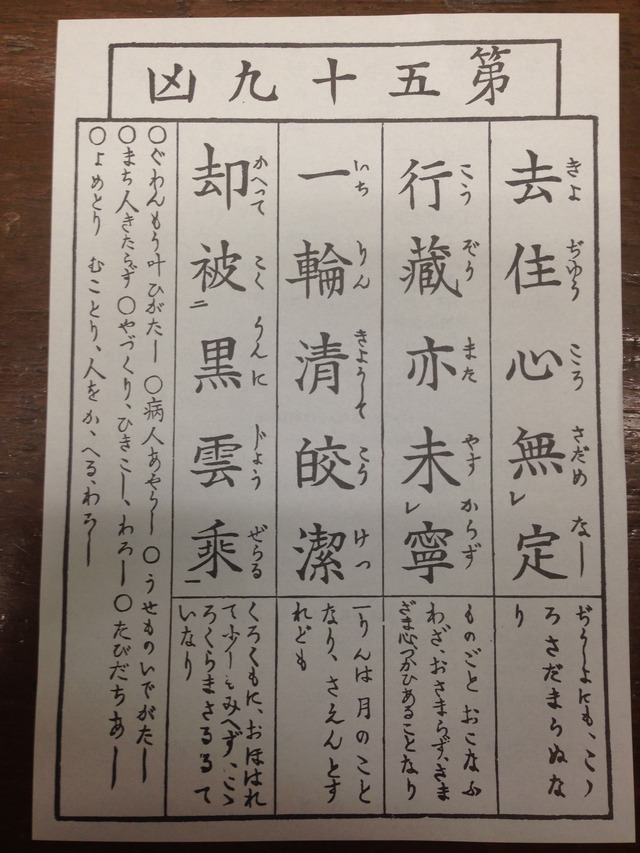 第五十九凶
去住心無レ定
きよ ぢゆう こころ さだめ なし
ぢうしよにも、こゝ
ろ さだまらぬな
り
行藏亦未レ寧
こう ぞう また やす からず
ものごと おこなふ
わざ、おさまらず、さま
ざま心づかひあることなり
一輪清皎潔
いち りん きようして こう けつ
一りんは 月のこと
なり、さえんとす
れども
却被二黒雲乘一
かへって こく うんに じょう ぜらる
くろくもに、おほはれ
て少しもみへず、こゝ
ろくらまさるるて
いなり
○ぐわんもう叶ひがたし ○病人あやうし ○うせものいでがたし
○まち人きたらず ○やづくり、ひきこし、わろし ○たびだちあし
○よめとり むことり、人をかゝへる、わろし